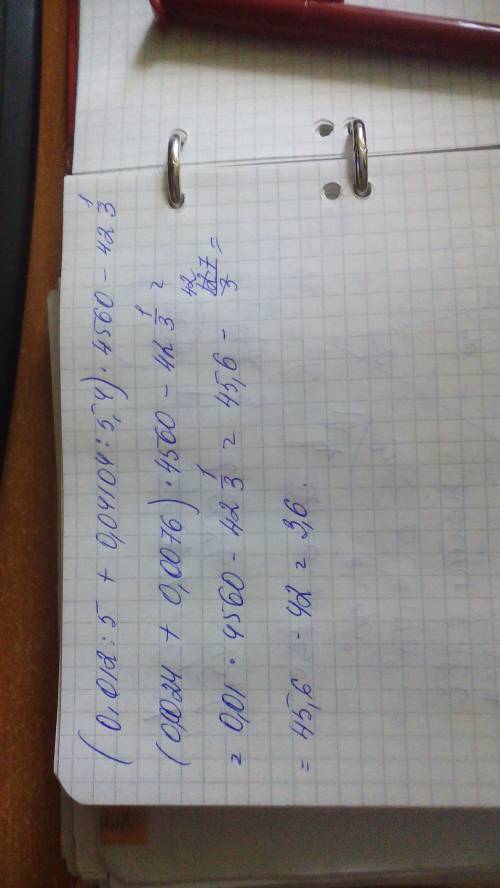 (0,012:5 + 0,04104:5,4) · 4560 - 42 1/3
(0,0024 + 0,0076) · 4560 - 42 1/3 =
= 0,01 · 4560 - 42 1/3 = 45,6 - 42 127/3 =
= 45,6 - 42 = 3,6.